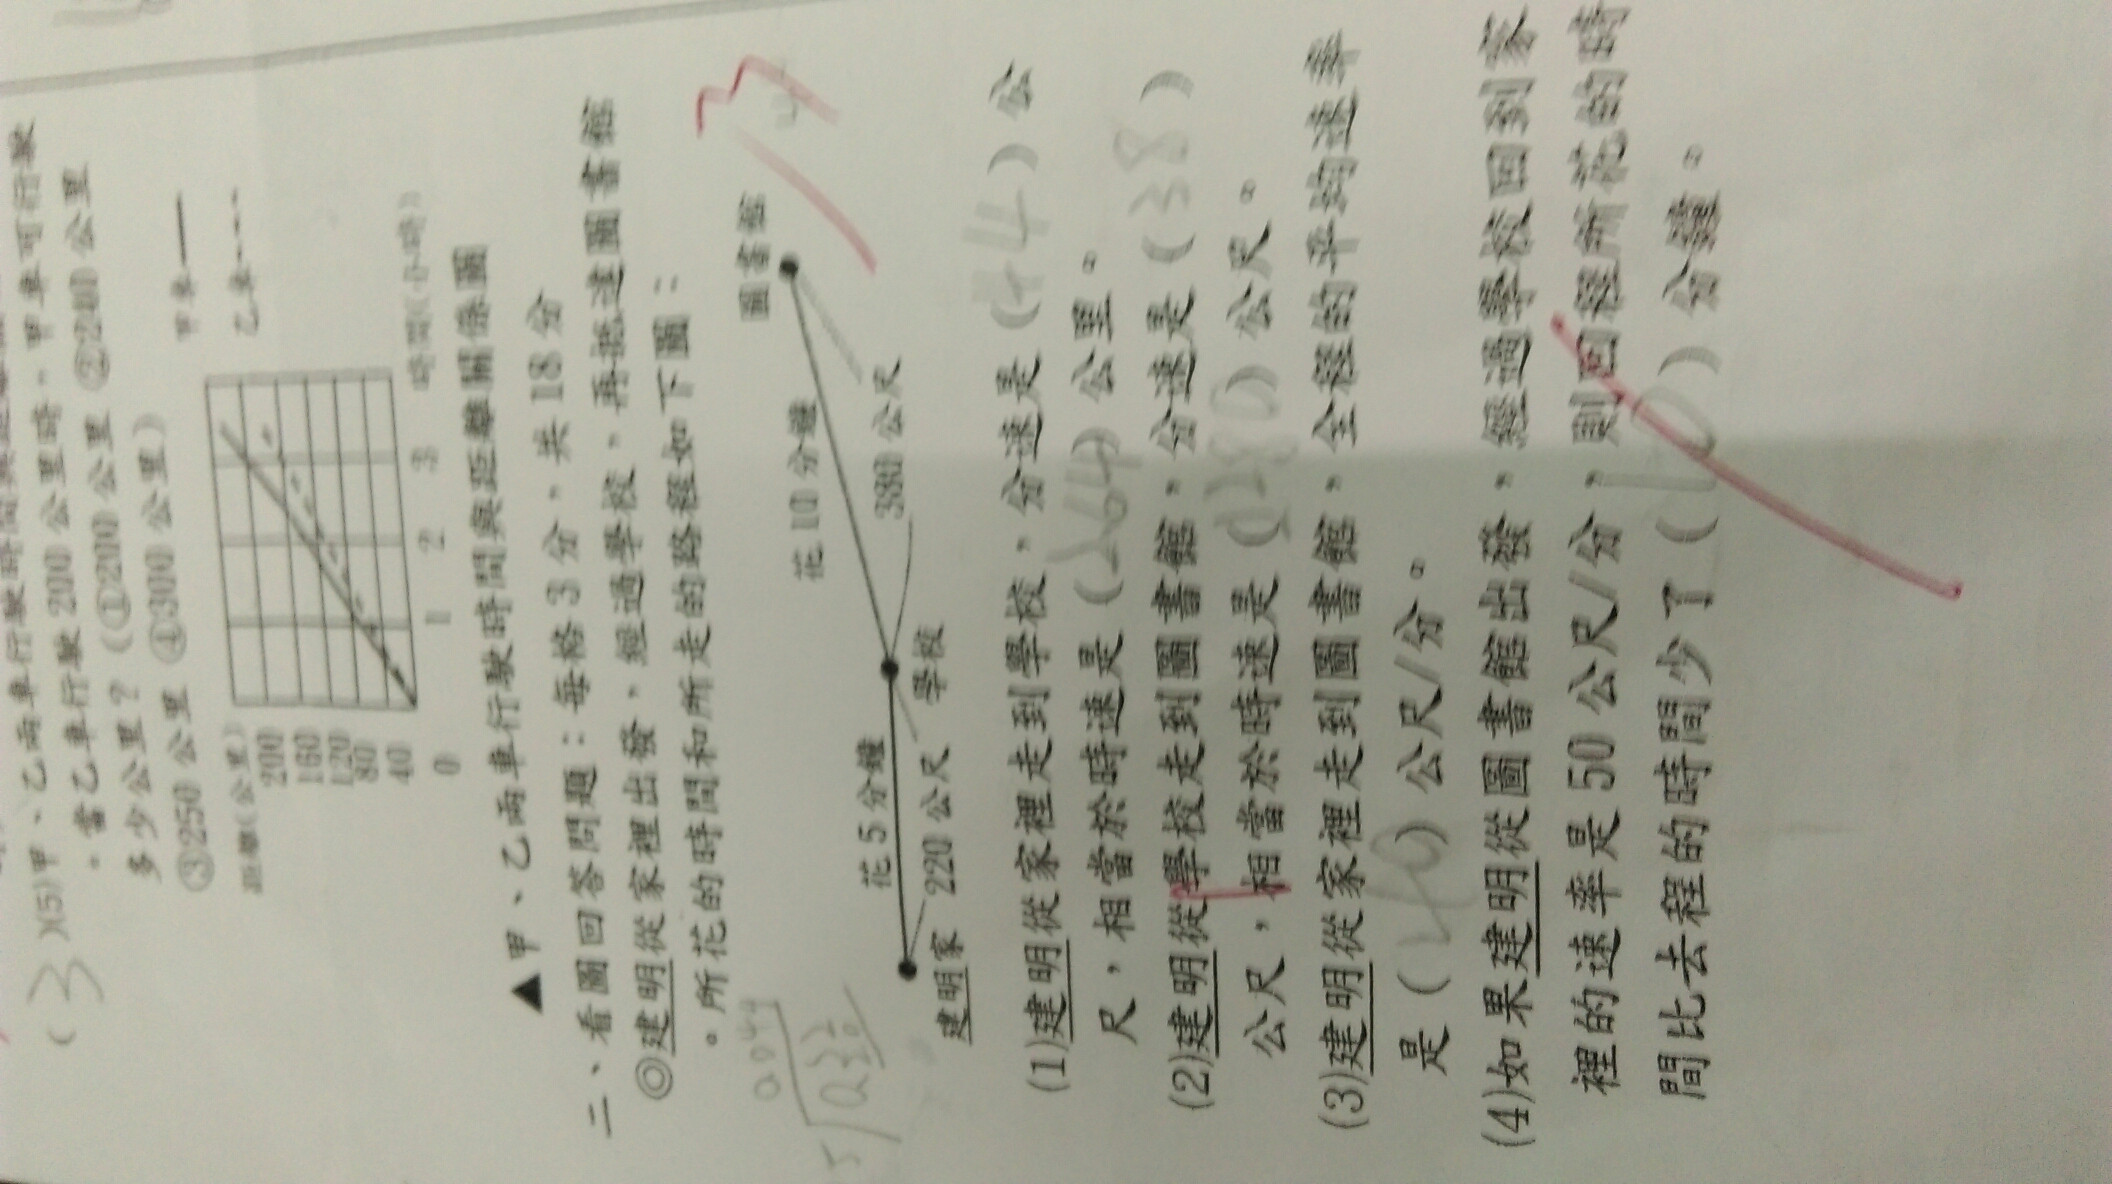 (3)(5)甲、乙兩車行駛時間與距離
。當乙車行駛 200 公里時,甲車可行駛
多少公里?(①200 公里 ②240 公里
③250 公里 ④300 公里)
距離(公里)
甲車
乙車
200
160
120
80
40
0
1
2
3
時間(小時)
▲甲、乙兩車行駛時間與距離關係圖
二、看圖回答問題:每格 3 分,共 18 分
◎建明從家裡出發,經過學校,再抵達圖書館
。所花的時間和所走的路程如下圖:
圖書館
花 10 分鐘
380 公尺
花 5 分鐘
220 公尺
學校
建明家
(1)建明從家裡走到學校,分速是(44)公
尺,相當於時速是(2.64)公里。
(2)建明從學校走到圖書館,分速是(38)
公尺,相當於時速是(2280)公尺。
(3)建明從家裡走到圖書館,全程的平均速率
是(40)公尺/分。
(4)如果建明從圖書館出發,經過學校回到家
裡的速率是 50 公尺/分,則回程所花的時
間比去程的時間少了( )分鐘。